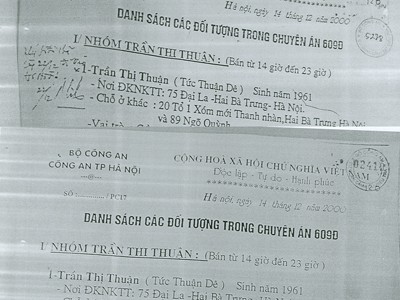 Hà nội, ngày 14 tháng 12 năm 2000
DANH SÁCH CÁC ĐỐI TƯỢNG TRONG CHUYÊN ÁN 609Đ
I/ NHÓM TRẦN THỊ THUẬN: (Bán từ 14 giờ đến 23 giờ)
1-Trần Thị Thuận (Tức Thuận Dê) Sinh năm 1961
- Nơi ĐKNKTT: 75 Đại La -Hai Bà Trưng- Hà Nội.
- Chỗ ở khác : 20 Tổ 1 Xóm mới Thanh nhàn, Hai Bà Trưng Hà Nội
và 89 Ngõ Quỳnh
BỘ CÔNG AN
CÔNG AN TP HÀ NỘI
CỘNG HOÀ XÃ HỘI CHỦ NGHĨA VIỆT
Độc lập - Tự do - Hạnh phúc
02414
SỐ : /PC17
Hà nội, ngày 14 tháng 12 năm 2000
DANH SÁCH CÁC ĐỐI TƯỢNG TRONG CHUYÊN ÁN 609Đ
I. NHÓM TRẦN THỊ THUẬN: (Bán từ 14 giờ đến 23 giờ)
1-Trần Thị Thuận (Tức Thuận Dê) Sinh năm 1961
- Nơi ĐKNKTT: 75 Đại La -Hai Bà Trưng- Hà Nội.